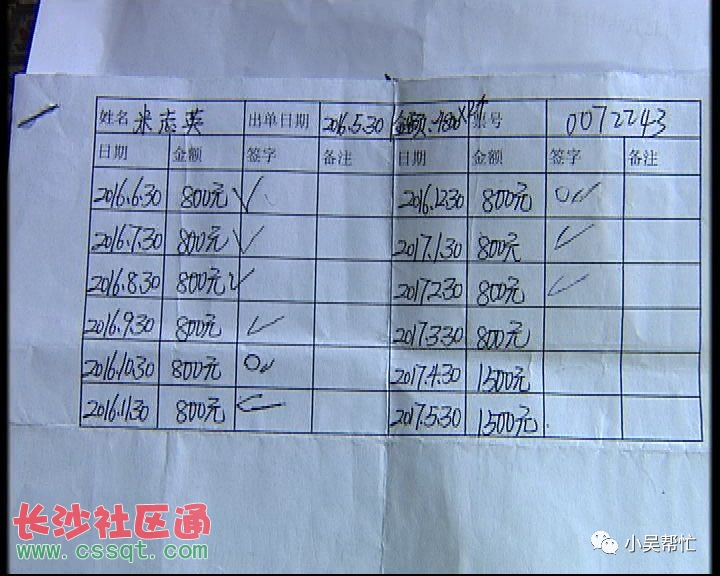 姓名 米志英 出单日期 2016.5.30 金额:4800 票号 0072243
日期 金额 签字 备注 日期 金额 签字 备注
2016.6.30 800元 2016.12.30 800元
2016.7.30 800元 2017.1.30 800元
2016.8.30 800元 2017.2.30 800元
2016.9.30 800元 2017.3.30 800元
2016.10.30 800元 2017.4.30 1500元
2016.11.30 800元 2017.5.30 1500元
长沙社区通
www.cssqt.com
小吴帮忙